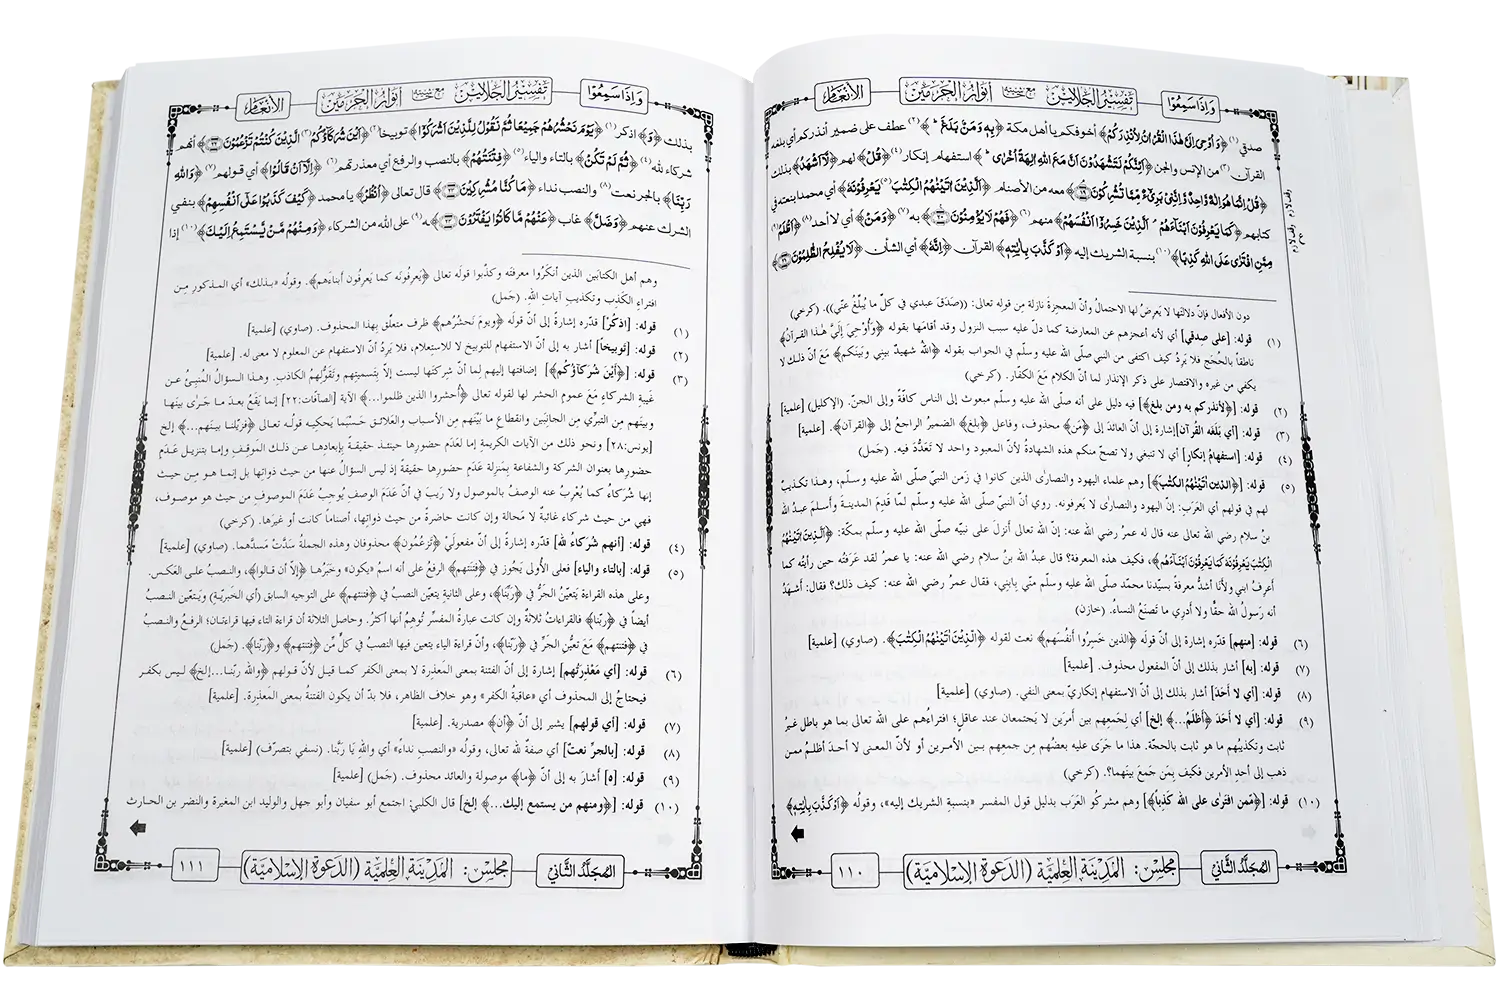 وَإِذَا سَمِعُوْا
تفسير الجلالين مع حاشية أنوار الحرمين
الأنعام
صدقي (١) ﴿وَ اُوْحِیَ اِلَیَّ هٰذَا الْقُرْاٰنُ لِاُنْذِرَكُمْ﴾ أخوفكم يا أهل مكة ﴿بِهٖ وَ مَنْۢ بَلَغَ ؕ﴾ (٢) عطف على ضمير أنذركم أي بلغه
القرآن (٣) من الإنس والجن ﴿اَىِٕنَّكُمْ لَتَشْهَدُوْنَ اَنَّ مَعَ اللّٰهِ اٰلِهَةً اُخْرٰی ؕ﴾ استفهام إنكار (٤) ﴿قُلْ﴾ لهم ﴿لَّاۤ اَشْهَدُ﴾ بذلك
﴿قُلْ اِنَّمَا هُوَ اِلٰهٌ وَّاحِدٌ وَّ اِنَّنِیْ بَرِیْٓءٌ مِّمَّا تُشْرِكُوْنَ ۘ﴿۱۹﴾﴾ معه من الأصنام ﴿اَلَّذِیْنَ اٰتَیْنٰهُمُ الْكِتٰبَ (٥) یَعْرِفُوْنَهٗ﴾ أي محمدا بنعته في
كتابهم ﴿كَمَا یَعْرِفُوْنَ اَبْنَآءَهُمْ ۘ اَلَّذِیْنَ خَسِرُوْۤا اَنْفُسَهُمْ﴾ منهم (٦) ﴿فَهُمْ لَا یُؤْمِنُوْنَ ﴿۲۰﴾﴾ به (٧) ﴿وَ مَنْ﴾ أي لا أحد (٨) ﴿اَظْلَمُ (٩)
مِمَّنِ افْتَرٰی عَلَی اللّٰهِ كَذِبًا﴾ (١٠) بنسبة الشريك إليه ﴿اَوْ كَذَّبَ بِاٰیٰتِهٖ﴾ القرآن ﴿اِنَّهٗ﴾ أي الشأن ﴿لَا یُفْلِحُ الظّٰلِمُوْنَ ﴿۲۱﴾﴾
دون الأفعال فإنّ دلالتها لا يَعرِضُ لها الاحتمالُ وأنّ المعجزةَ نازلة مِن قوله تعالى: ((صَدَقَ عبدي في كلّ ما يُبلِّغُ عنّي)). (كرخي)
(١) قوله: [على صِدقي] أي لأنه أعجزهم عن المعارضة كما دلّ عليه سبب النزول وقد أقامَها بقوله ﴿وَأُوْحِيَ إِلَيَّ هٰذا القرآن﴾
ناطقاً بالحُجَج فلا يَرِدُ كيف اكتفى من النبي صلّى الله عليه وسلّم في الجواب بقوله ﴿اللهُ شهيدٌ بيني وبَينَكم﴾ مَعَ أنّ ذلك لا
يكفي من غيره والاقتصار على ذكر الإنذار لما أنّ الكلام مَعَ الكفّار. (كرخي)
(٢) قوله: [﴿لأنذركم به ومن بلغ﴾] فيه دليل على أنه صلّى الله عليه وسلّم مبعوث إلى الناس كافّة وإلى الجنّ. (الإكليل) [علمية]
(٣) قوله: [أي بَلَغَه القُرآن] إشارة إلى أنّ العائد إلى ﴿مَن﴾ محذوف، وفاعل ﴿بلغ﴾ الضميرُ الراجعُ إلى ﴿القرآن﴾. [علمية]
(٤) قوله: [استفهامُ إنكارٍ] أي لا تنبغي ولا تصحّ منكم هذه الشهادةُ لأنّ المعبود واحد لا تَعَدُّدَ فيه. (جَمل)
(٥) قوله: [﴿الذين اٰتَيْنٰهُمُ الكتٰبَ﴾] وهم علماء اليهود والنصارى الذين كانوا في زَمن النبيّ صلّى الله عليه وسلّم، وهذا تكذيبٌ
لهم في قولهم أي العَرَبِ: إنّ اليهود والنصارٰى لا يَعرفونه. روي أنّ النبيّ صلّى الله عليه وسلّم لمّا قَدِمَ المدينةَ وأسلَمَ عبدُ الله
بنُ سلام رضي الله عنه قال له عمرُ رضي الله عنه: إنّ الله تعالى أنزلَ على نبيّه صلّى الله عليه وسلّم بمكّة: ﴿اَلَّذِیْنَ اٰتَیْنٰهُمُ
الْكِتٰبَ یَعْرِفُوْنَهٗ كَمَا یَعْرِفُوْنَ اَبْنَآءَهُمْ﴾، فكيف هذه المعرفة؟ قال عبدُ الله بنُ سلام رضي الله عنه: يا عمرُ لقد عَرَفتُه حين رأيتُه كما
أعرِفُ ابني ولأنا أشدُّ معرفةً بسيّدنا محمّد صلّى الله عليه وسلّم مِنّي بِابنِي، فقال عمرُ رضي الله عنه: كيف ذلك؟ فقال: أَشهَدُ
أنه رَسولُ الله حقًّا ولا أدرِي ما تَصنَعُ النساءُ. (خازن)
(٦) قوله: [منهم] قدّره إشارة إلى أنّ قولَه ﴿الذين خَسِرُوا أنفُسَهم﴾ نعت لقوله ﴿اَلَّذِیْنَ اٰتَیْنٰهُمُ الْكِتٰبَ﴾. (صاوي) [علمية]
(٧) قوله: [به] أشار بذلك إلى أنّ المفعول محذوف. [علمية]
(٨) قوله: [أي لا أحَدَ] أشار بذلك إلى أنّ الاستفهام إنكاريّ بمعنى النفي. (صاوي) [علمية]
(٩) قوله: [أي لا أحَدَ ﴿أظْلَمُ...﴾ إلخ] أي لِجَمعِهم بين أَمرَين لا يَجتمعان عند عاقلٍ؛ افتراءُهم على الله تعالى بما هو باطل غيرُ
ثابت وتكذيبُهم ما هو ثابت بالحجّة. هذا ما جَرَى عليه بعضُهم مِن جمعِهم بين الأمرين أو لأنّ المعنى لا أحدَ أظلمُ ممن
ذهب إلى أحدِ الأمرين فكيف بِمَن جَمعَ بينَهما؟. (كرخي)
(١٠) قوله: [﴿مِمّن افتَرَى على الله كَذِباً﴾] وهم مشركُو العَرَب بدليل قول المفسر «بنسبةِ الشريك إليه»، وقولُه ﴿اَوْ كَذَّبَ بِاٰیٰتِهٖ﴾
المجلّد الثّاني
مجلس: المدينة العلمية (الدعوة الإسلامية)
١١٠
وَإِذَا سَمِعُوْا
تفسير الجلالين مع حاشية أنوار الحرمين
الأنعام
بذلك ﴿وَ﴾ اذكر (١) ﴿یَوْمَ نَحْشُرُهُمْ جَمِیْعًا ثُمَّ نَقُوْلُ لِلَّذِیْنَ اَشْرَكُوْۤا﴾ توبيخا (٢) ﴿اَیْنَ شُرَكَآؤُكُمُ (٣) الَّذِیْنَ كُنْتُمْ تَزْعُمُوْنَ ﴿۲۲﴾﴾ أنهم
شركاء لله (٤) ﴿ثُمَّ لَمْ تَكُنْ﴾ بالتاء والياء (٥) ﴿فِتْنَتُهُمْ﴾ بالنصب والرفع أي معذرتهم (٦) ﴿اِلَّاۤ اَنْ قَالُوْا﴾ أي قولهم (٧) ﴿وَ اللّٰهِ
رَبِّنَا﴾ بالجر نعت (٨) والنصب نداء ﴿مَا كُنَّا مُشْرِكِیْنَ ﴿۲۳﴾﴾ قال تعالى ﴿اُنْظُرْ﴾ يا محمد ﴿كَیْفَ كَذَبُوْا عَلٰۤی اَنْفُسِهِمْ﴾ بنفي
الشرك عنهم ﴿وَ ضَلَّ﴾ غاب ﴿عَنْهُمْ مَّا كَانُوْا یَفْتَرُوْنَ ﴿۲۴﴾﴾ـه (٩) على الله من الشركاء ﴿وَ مِنْهُمْ مَّنْ یَّسْتَمِعُ اِلَیْكَ﴾ (١٠) إذا
وهم أهل الكتابَين الذين أنكَرُوا معرفته وكذّبوا قولَه تعالى ﴿يَعرِفُونَه كما يَعرِفُون أبناءَهم﴾. وقولُه «بذلك» أي المذكورِ مِن
افتراءِ الكَذِب وتكذيبِ آياتِ اللهِ. (جَمل)
(١) قوله: [اذكُر] قدّره إشارةً إلى أنّ قولَه ﴿ويومَ نَحشُرهُم﴾ ظرف متعلّق بهذا المحذوف. (صاوي) [علمية]
(٢) قوله: [تَوبيخاً] أشار به إلى أنّ الاستفهام للتوبيخ لا للاستِعلام، فلا يَرِدُ أنّ الاستفهام عن المعلوم لا معنى له. [علمية]
(٣) قوله: [﴿أينَ شُركاؤُكم﴾] إضافتها إليهم لِما أنّ شركَتَها ليست إلاّ بتَسميتهم وتَقَوُّلِهم الكاذبِ. وهذا السؤالُ المُنبِئُ عن
غَيبةِ الشركاءِ مَعَ عمومِ الحشر لها لقوله تعالى ﴿اُحشروا الذين ظلموا...﴾ الآيةَ [الصافّات:٢٢] إنما يَقَعُ بعدَ ما جَرَى بينها
وبينهم مِن التبرِّي مِن الجانِبَين وانقطاعِ ما بَيْنَهم مِن الأسبابِ والعَلائقِ حَسْبَما يَحكِيه قولُه تعالى ﴿فزيّلنا بينَهم...﴾ إلخ
[يونس:٢٨] ونحو ذلك من الآيات الكريمةِ إما لعَدَم حضورِها حينئذ حقيقةً بإبعادِها عن ذلك المَوقفِ وإما بتنزيلِ عَدَمِ
حضورِها بعنوان الشركة والشفاعة بمَنزلة عَدَمِ حضورِها حقيقةً إذ ليس السؤالُ عنها من حيث ذواتِها بل إنما هو مِن حيث
إنها شُركاءُ كما يُعْرِبُ عنه الوصفُ بالموصولِ ولا رَيبَ في أنّ عَدَمَ الوصف يُوجِبُ عَدَمَ الموصوفِ من حيث هو موصوف،
فهي من حيث شركاء غائبةٌ لا مَحالةَ وإن كانت حاضرةً من حيث ذواتها، أصناماً كانت أو غيرَها. (كرخي)
(٤) قوله: [أنهم شُركاءُ لله] قدّره إشارةً إلى أنّ مفعولَيْ ﴿تَزعُمُون﴾ محذوفان وهذه الجملةُ سَدَّتْ مَسدَّهما. (صاوي) [علمية]
(٥) قوله: [بالتاء والياء] فعلى الأولى يَجُوز في ﴿فتنتهم﴾ الرفعُ على أنه اسمُ «يكون» وخَبَرُها ﴿إلاّ أن قالوا﴾، والنصبُ على العَكس.
وعلى هذه القراءة يَتَعيَّنُ الجرُّ في ﴿ربّنا﴾، وعلى الثانيةِ يتعيَّن النصبُ في ﴿فتنتهم﴾ على التوجيه السابق (أي الخبريّةِ) ويَتعيّن النصبُ
أيضاً في ﴿ربّنا﴾ فالقراءاتُ ثلاثةٌ وإن كانت عبارةُ المفسِّر تُوهِمُ أنها أكثرُ. وحاصل الثلاثة أن قراءة التاء فيها قراءتان؛ الرفعُ والنصبُ
في ﴿فتنتهم﴾ مَعَ تعيُّن الجرّ في ﴿ربّنا﴾، وأنّ قراءة الياء يتعين فيها النصبُ في كلٍّ مِّن ﴿فتنتهم﴾ و﴿ربّنا﴾. (جَمل)
(٦) قوله: [أي مَعْذِرَتُهم] إشارة إلى أنّ الفتنة بمعنى المَعذِرة لا بمعنى الكفر كما قيل لأنّ قولهم ﴿والله ربّنا...إلخ﴾ ليس بكفر
فيحتاجُ إلى المحذوف أي «عاقبةُ الكفر» وهو خلاف الظاهر، فلا بدّ أن يكون الفتنةُ بمعنى المَعذِرة. [علمية]
(٧) قوله: [أي قولهم] يشير إلى أنّ ﴿أن﴾ مصدرية. [علمية]
(٨) قوله: [بالجرّ نعتٌ] أي صفةٌ لله تعالى، وقولُه «والنصب نداءً» أي واللهِ يَا رَبَّنا. (نسفي بتصرّف) [علمية]
(٩) قوله: [ه] أشَارَ به إلى أنّ ﴿ما﴾ موصولة والعائد محذوف. (جَمل) [علمية]
(١٠) قوله: [﴿ومنهم من يستمع إليك...﴾ إلخ] قال الكلبيّ: اجتمع أبو سفيان وأبو جهل والوليد ابن المغيرة والنضر بن الحارث
المجلّد الثّاني
مجلس: المدينة العلمية (الدعوة الإسلامية)
١١١